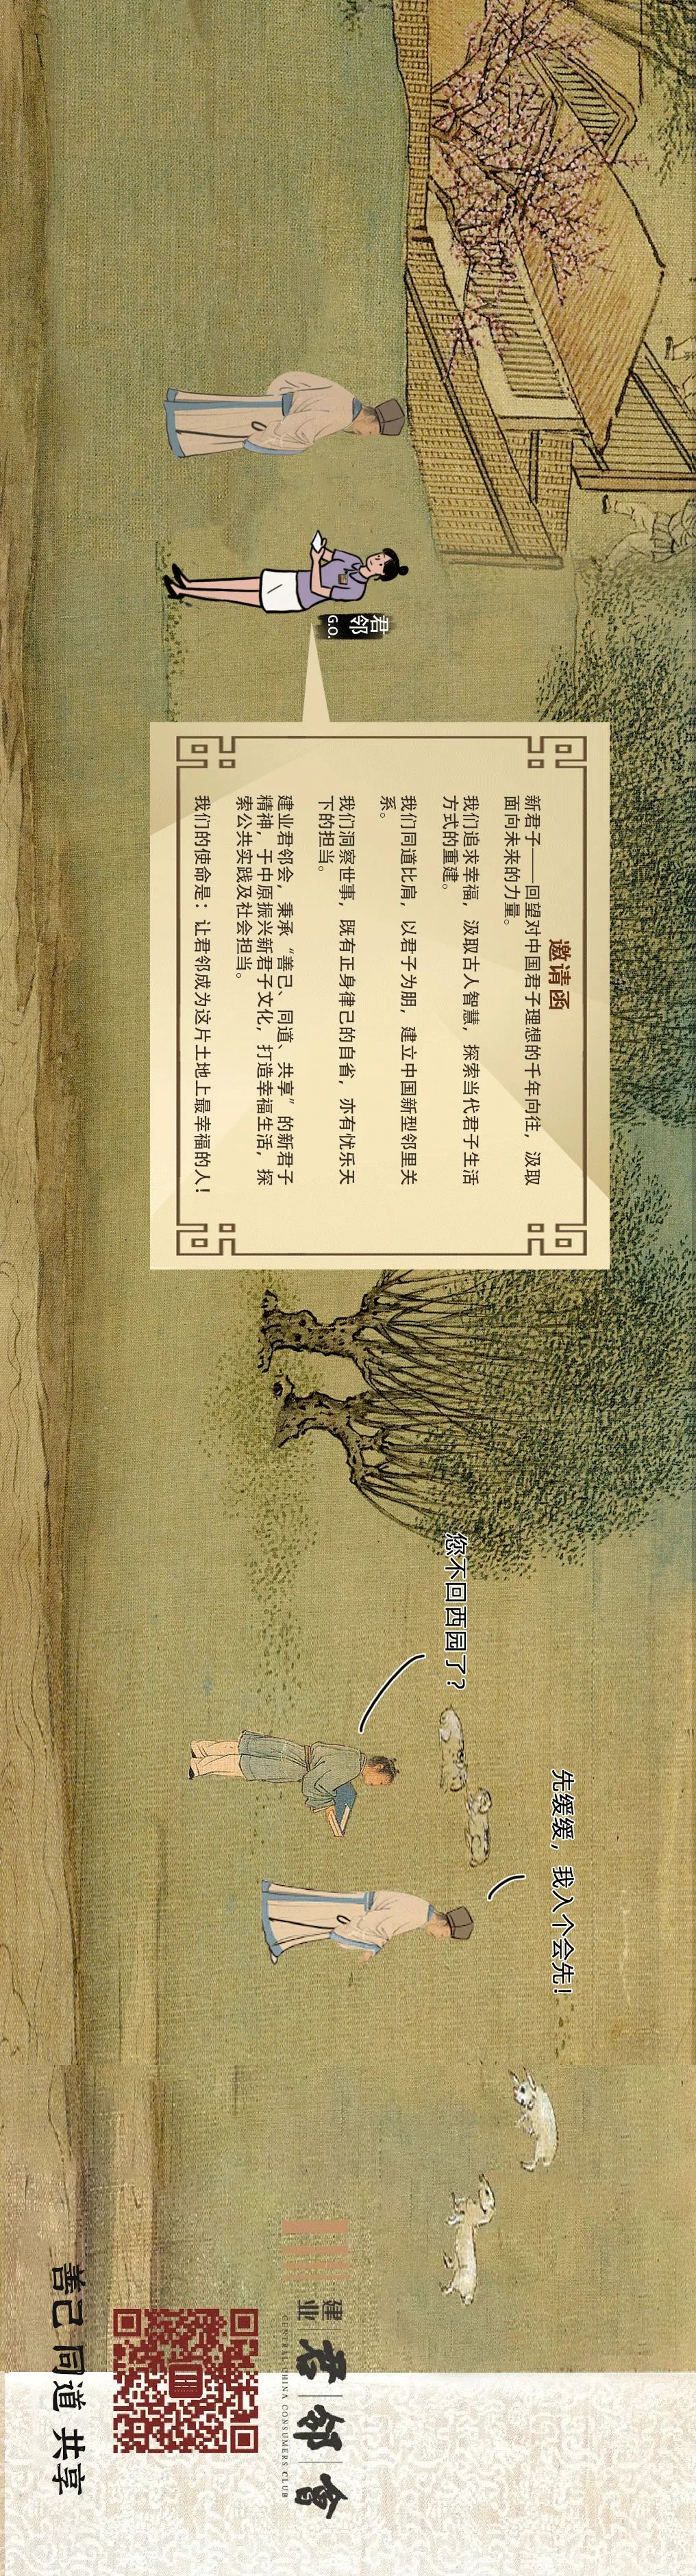 君邻
G.O.
邀请函
新君子——回望对中国君子理想的千年向往，汲取
面向未来的力量。
我们追求幸福，汲取古人智慧，探索当代君子生活
方式的重建。
我们同道比肩，以君子为朋，建立中国新型邻里关
系。
我们洞察世事，既有正身律己的自省，亦有忧乐天
下的担当。
建业君邻会，秉承“善己、同道、共享”的新君子
精神，于中原振兴新君子文化，打造幸福生活，探
索公共实践及社会担当。
我们的使命是：让君邻成为这片土地上最幸福的人！
您不回西园了？
先缓缓，我入个会先！
建业
君邻會
CENTRAL CHINA CONSUMERS CLUB
善己 同道 共享